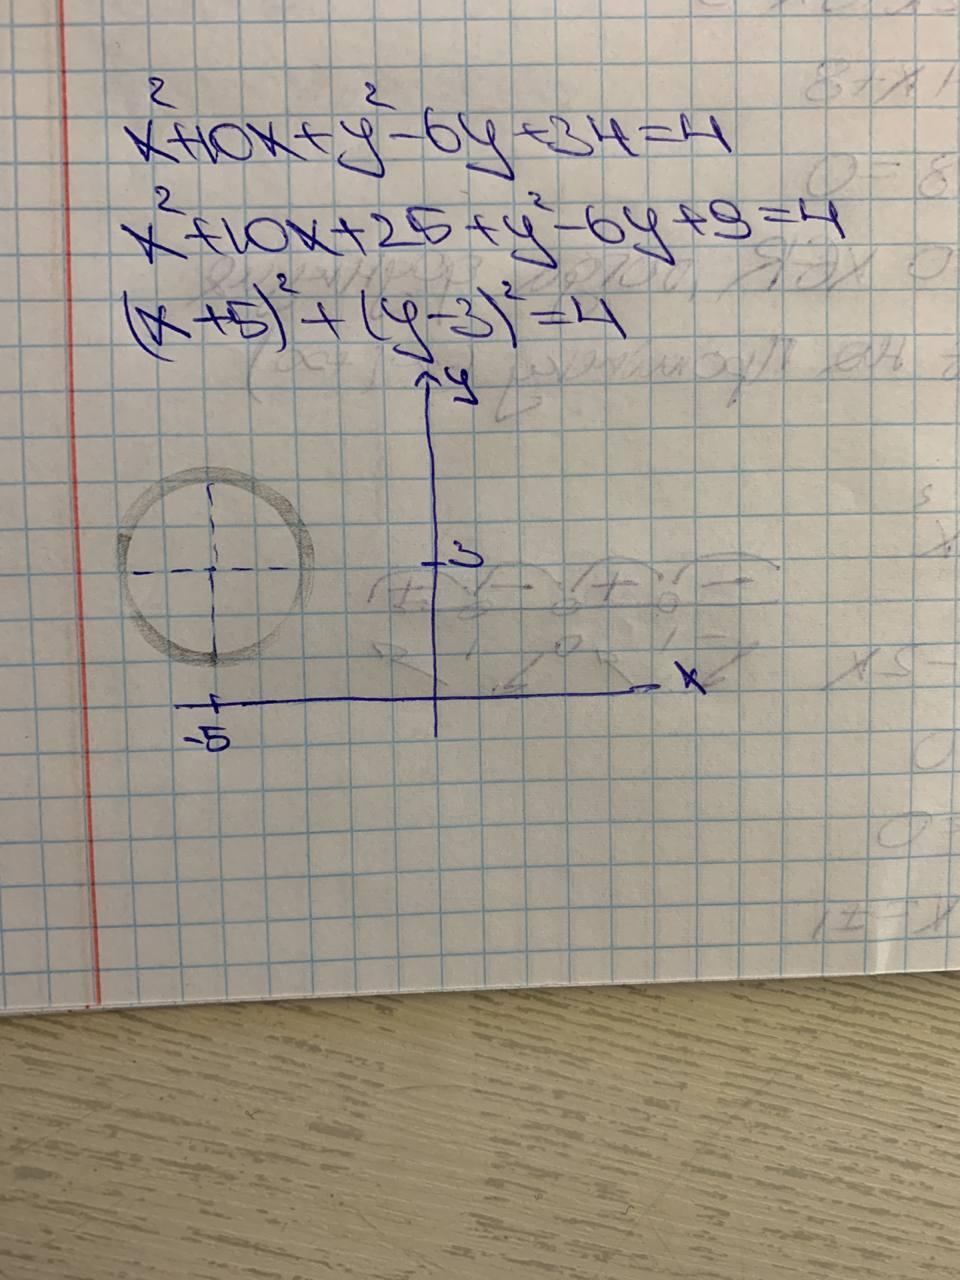 x²+10x+y²-6y+34=4
x²+10x+25+y²-6y+9=4
(x+5)²+(y-3)²=4
y
3
x
-5